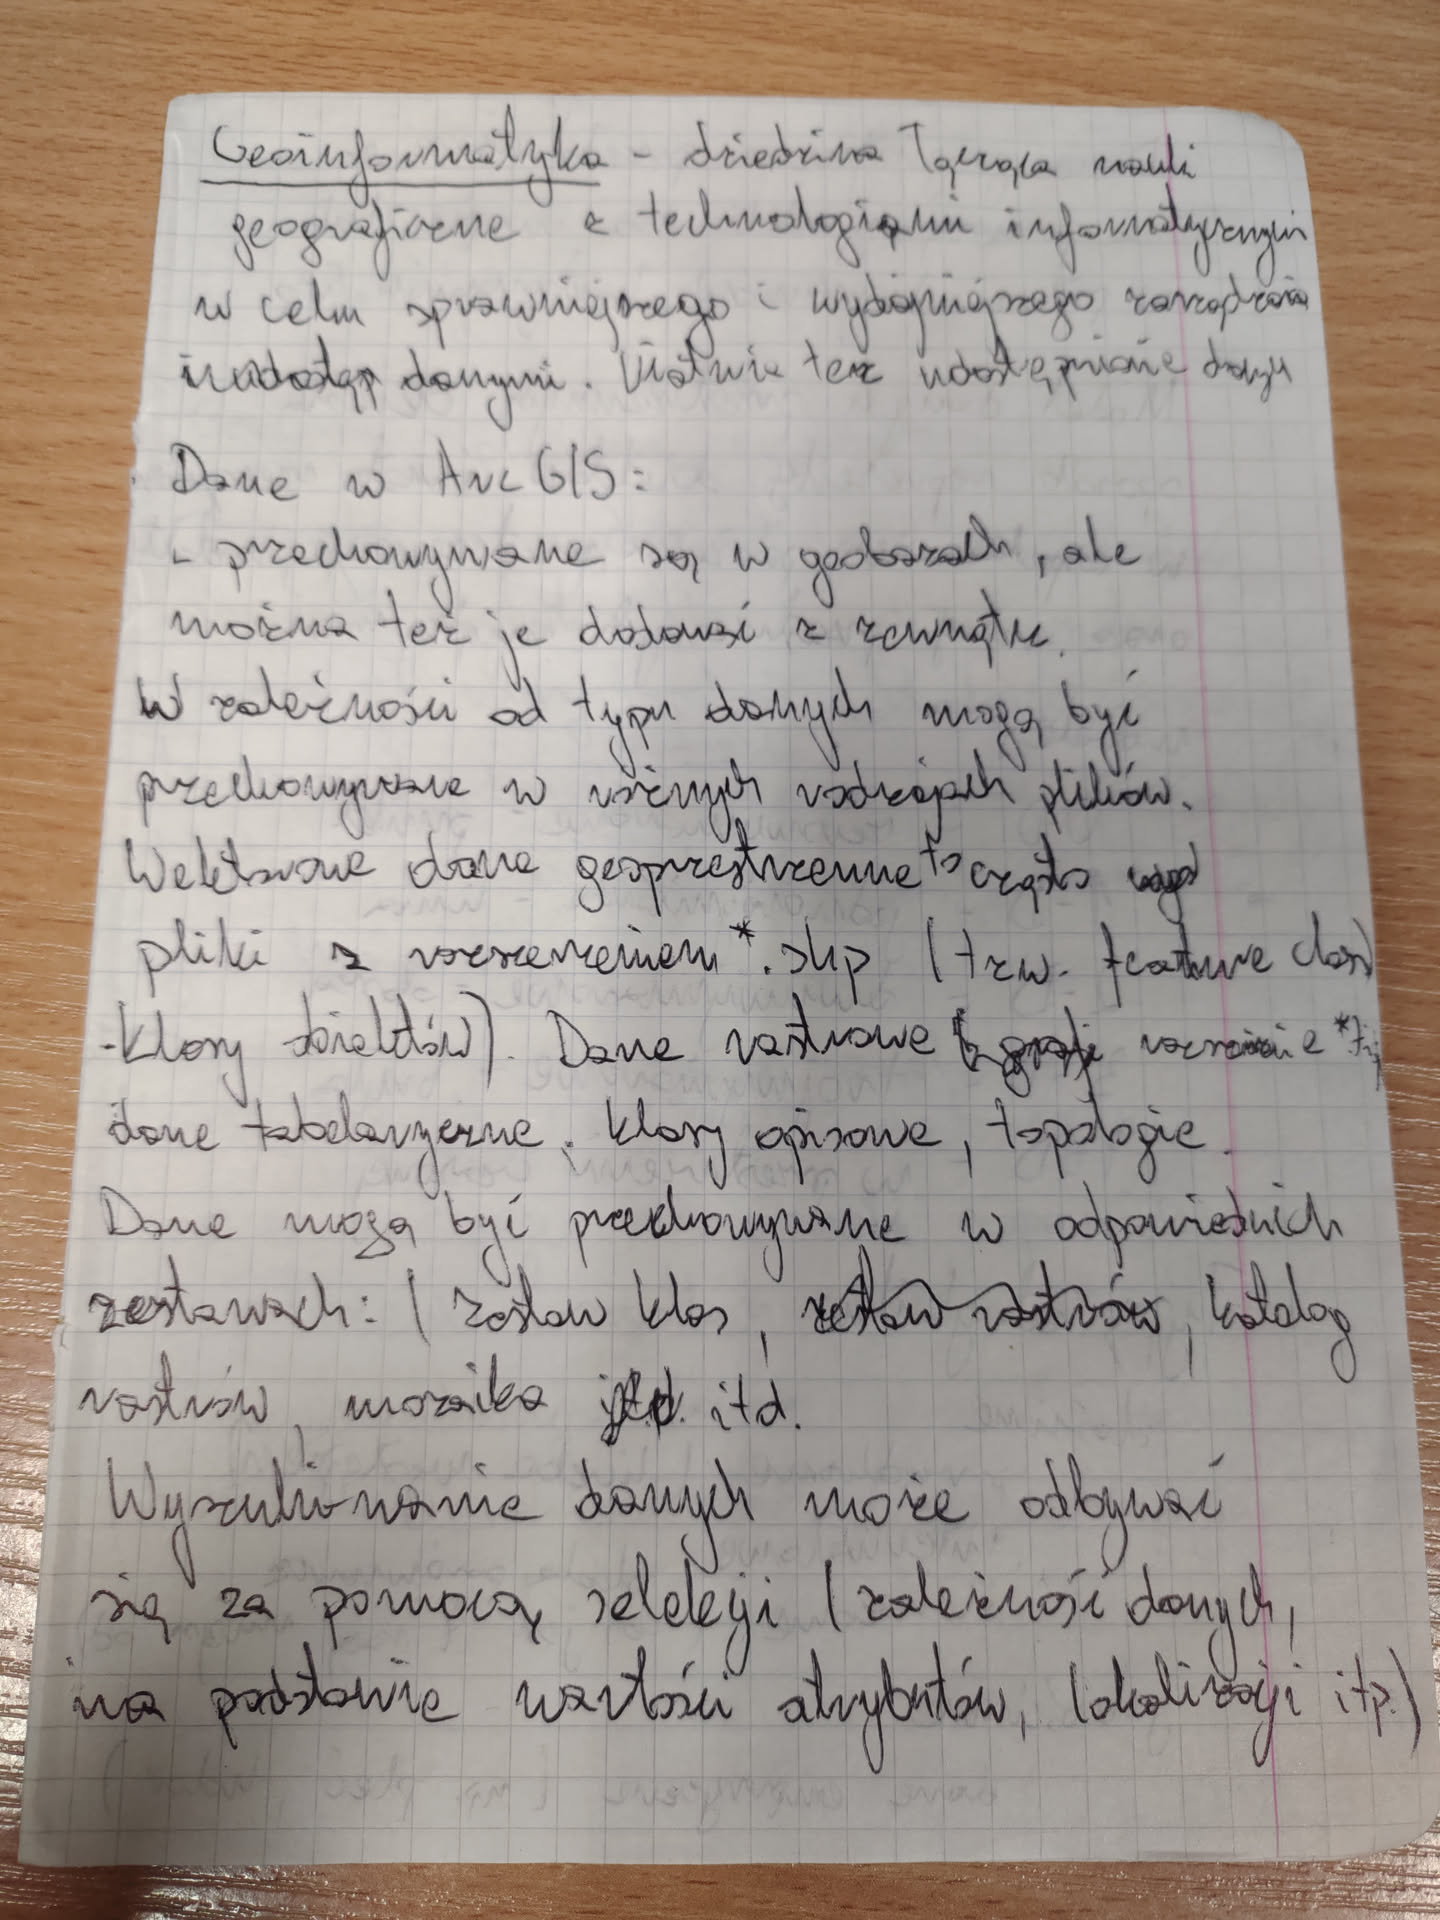 Geoinformatyka - dziedzina łącząca nauki
geograficzne z technologiami informatycznymi
w celu sprawniejszego i wydajniejszego zarządzania
danymi. Ułatwia też udostępnianie danych
Dane w ArcGIS:
- przechowywane są w geobazach, ale
można też je dodawać z zewnątrz.
W zależności od typu danych mogą być
przechowywane w różnych rodzajach plików.
Wektorowe dane geoprzestrzenne to często
pliki z rozszerzeniem *.shp (tzw. feature class
- klasy obiektów). Dane rastrowe rozszerzenie
dane tabelaryczne, klasy opisowe, topologie.
Dane mogą być przechowywane w odpowiednich
zestawach: (zestaw klas, zestaw rastrów, katalog
rastrów, mozaika itd.
Wyszukiwanie danych może odbywać
się za pomocą selekcji (zależność danych,
na podstawie wartości atrybutów, lokalizacji itp.)